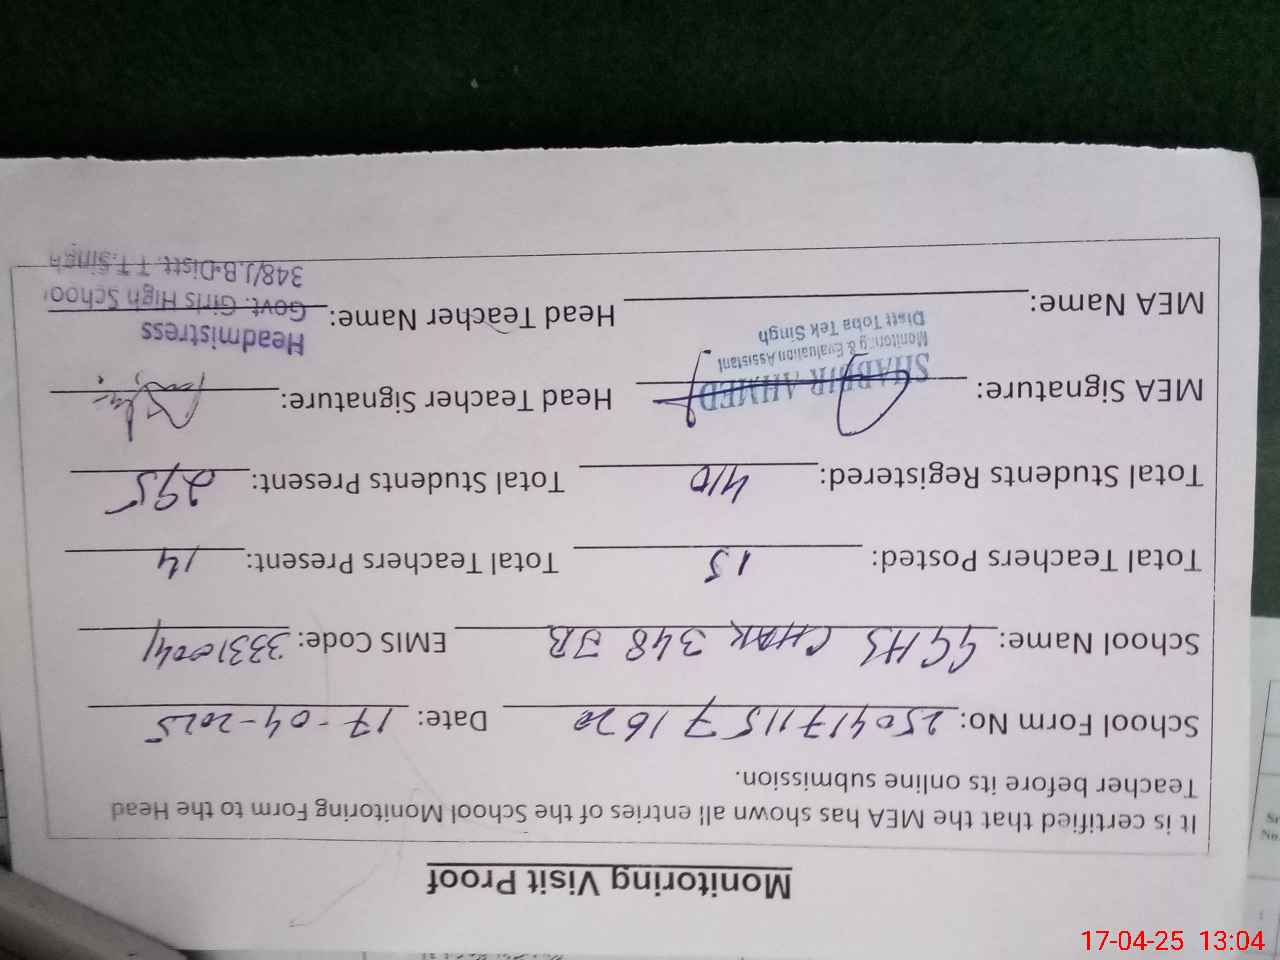 Monitoring Visit Proof
It is certified that the MEA has shown all entries of the School Monitoring Form to the Head
Teacher before its online submission.
School Form No: 25041711571620 Date: 17-04-2025
School Name: GGHS CHAK 348 JB EMIS Code: 33310041
Total Teachers Posted: 15 Total Teachers Present: 14
Total Students Registered: 410 Total Students Present: 295
MEA Signature: Head Teacher Signature:
SHABBIR AHMED
Monitoring & Evaluation Assistant
Distt Toba Tek Singh
Headmistress
MEA Name: Head Teacher Name: Govt. Girls High School
348/J.B-Distt. T.T.Singh
17-04-25 13:04